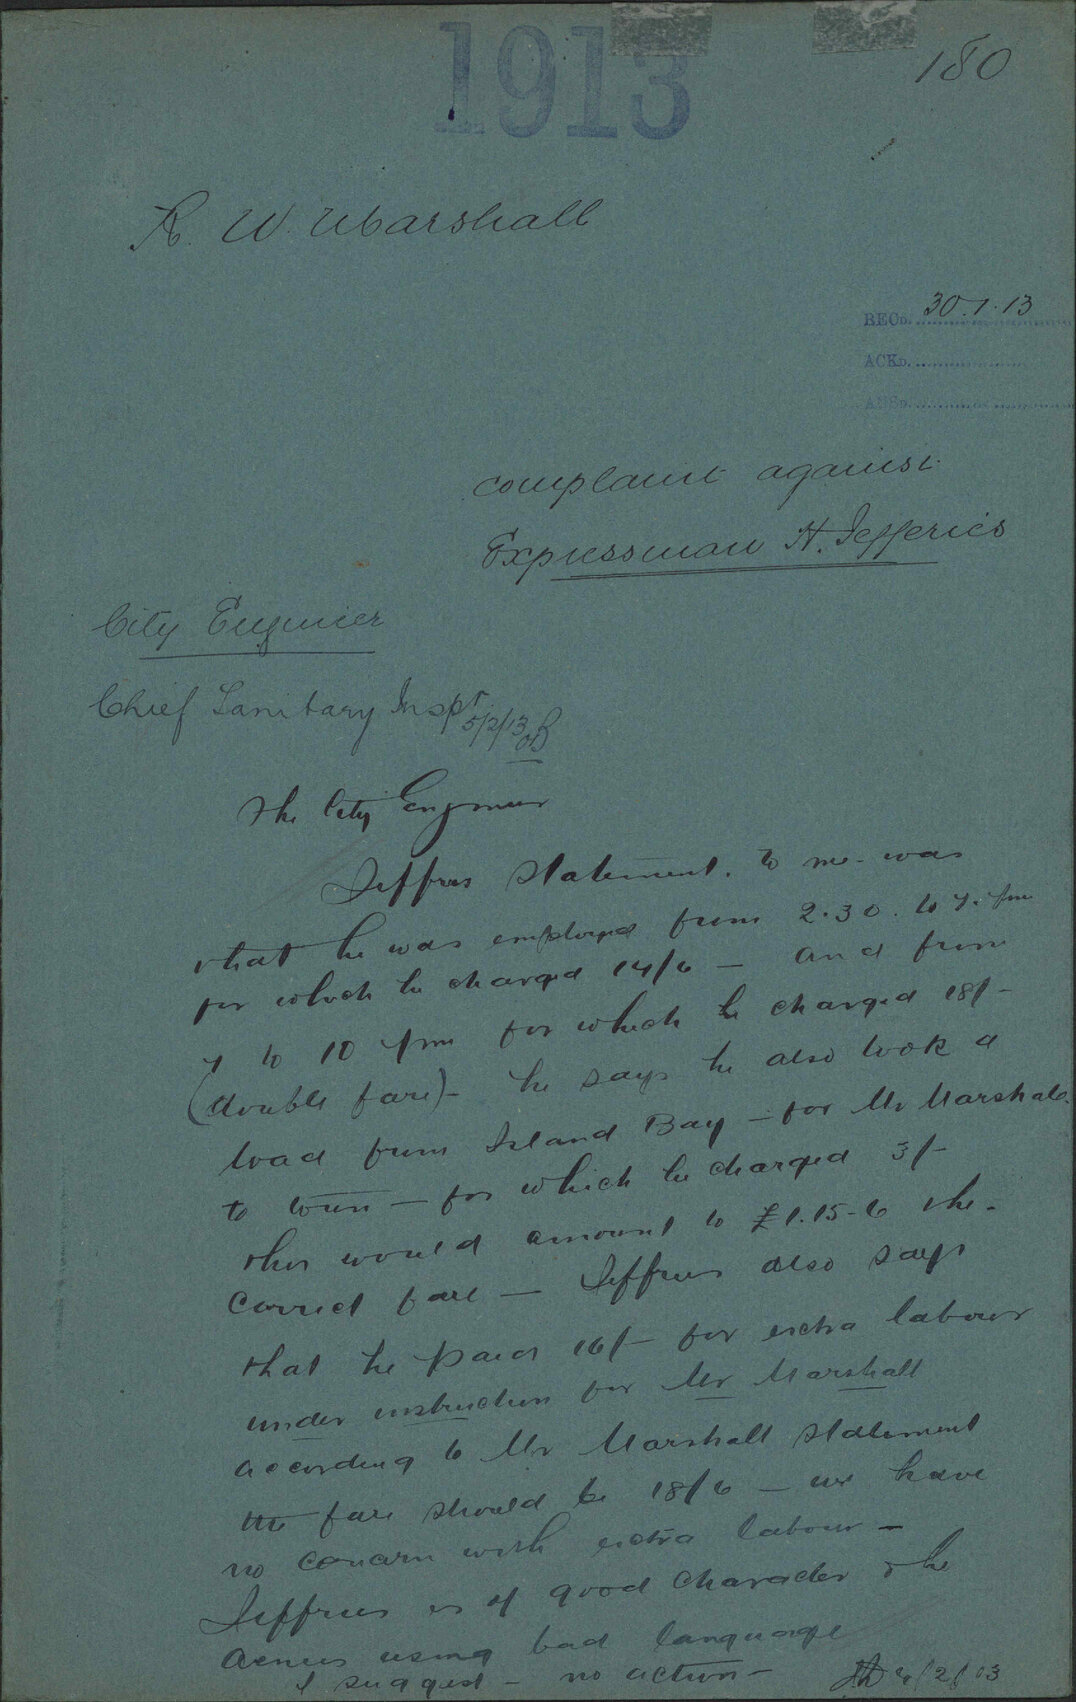 1913
180
R. W. Marshall
RECD. 30.1.13
ACKD.
ANSD.
complaint against
Expressman H. Jefferies
City Engineer
Chief Sanitary Inspr
5/2/13
The City Engineer
Jeffries statement. to me - was
that he was employed from 2.30. to 7. pm
for which he charged 14/6 — and from
7 to 10 pm for which he charged 18/-
(double fare) - he says he also took a
load from Island Bay - for Mr Marshall
to town - for which he charged 3/-
this would amount to £1.15-6 the -
correct fare - Jeffries also says
that he paid 16/- for extra labour
under instruction for Mr Marshall
according to Mr Marshall statement
the fare should be 18/6 — we have
no concern with extra labour -
Jeffries is of good character & he
denies using bad language
I suggest - no action -
/2/03